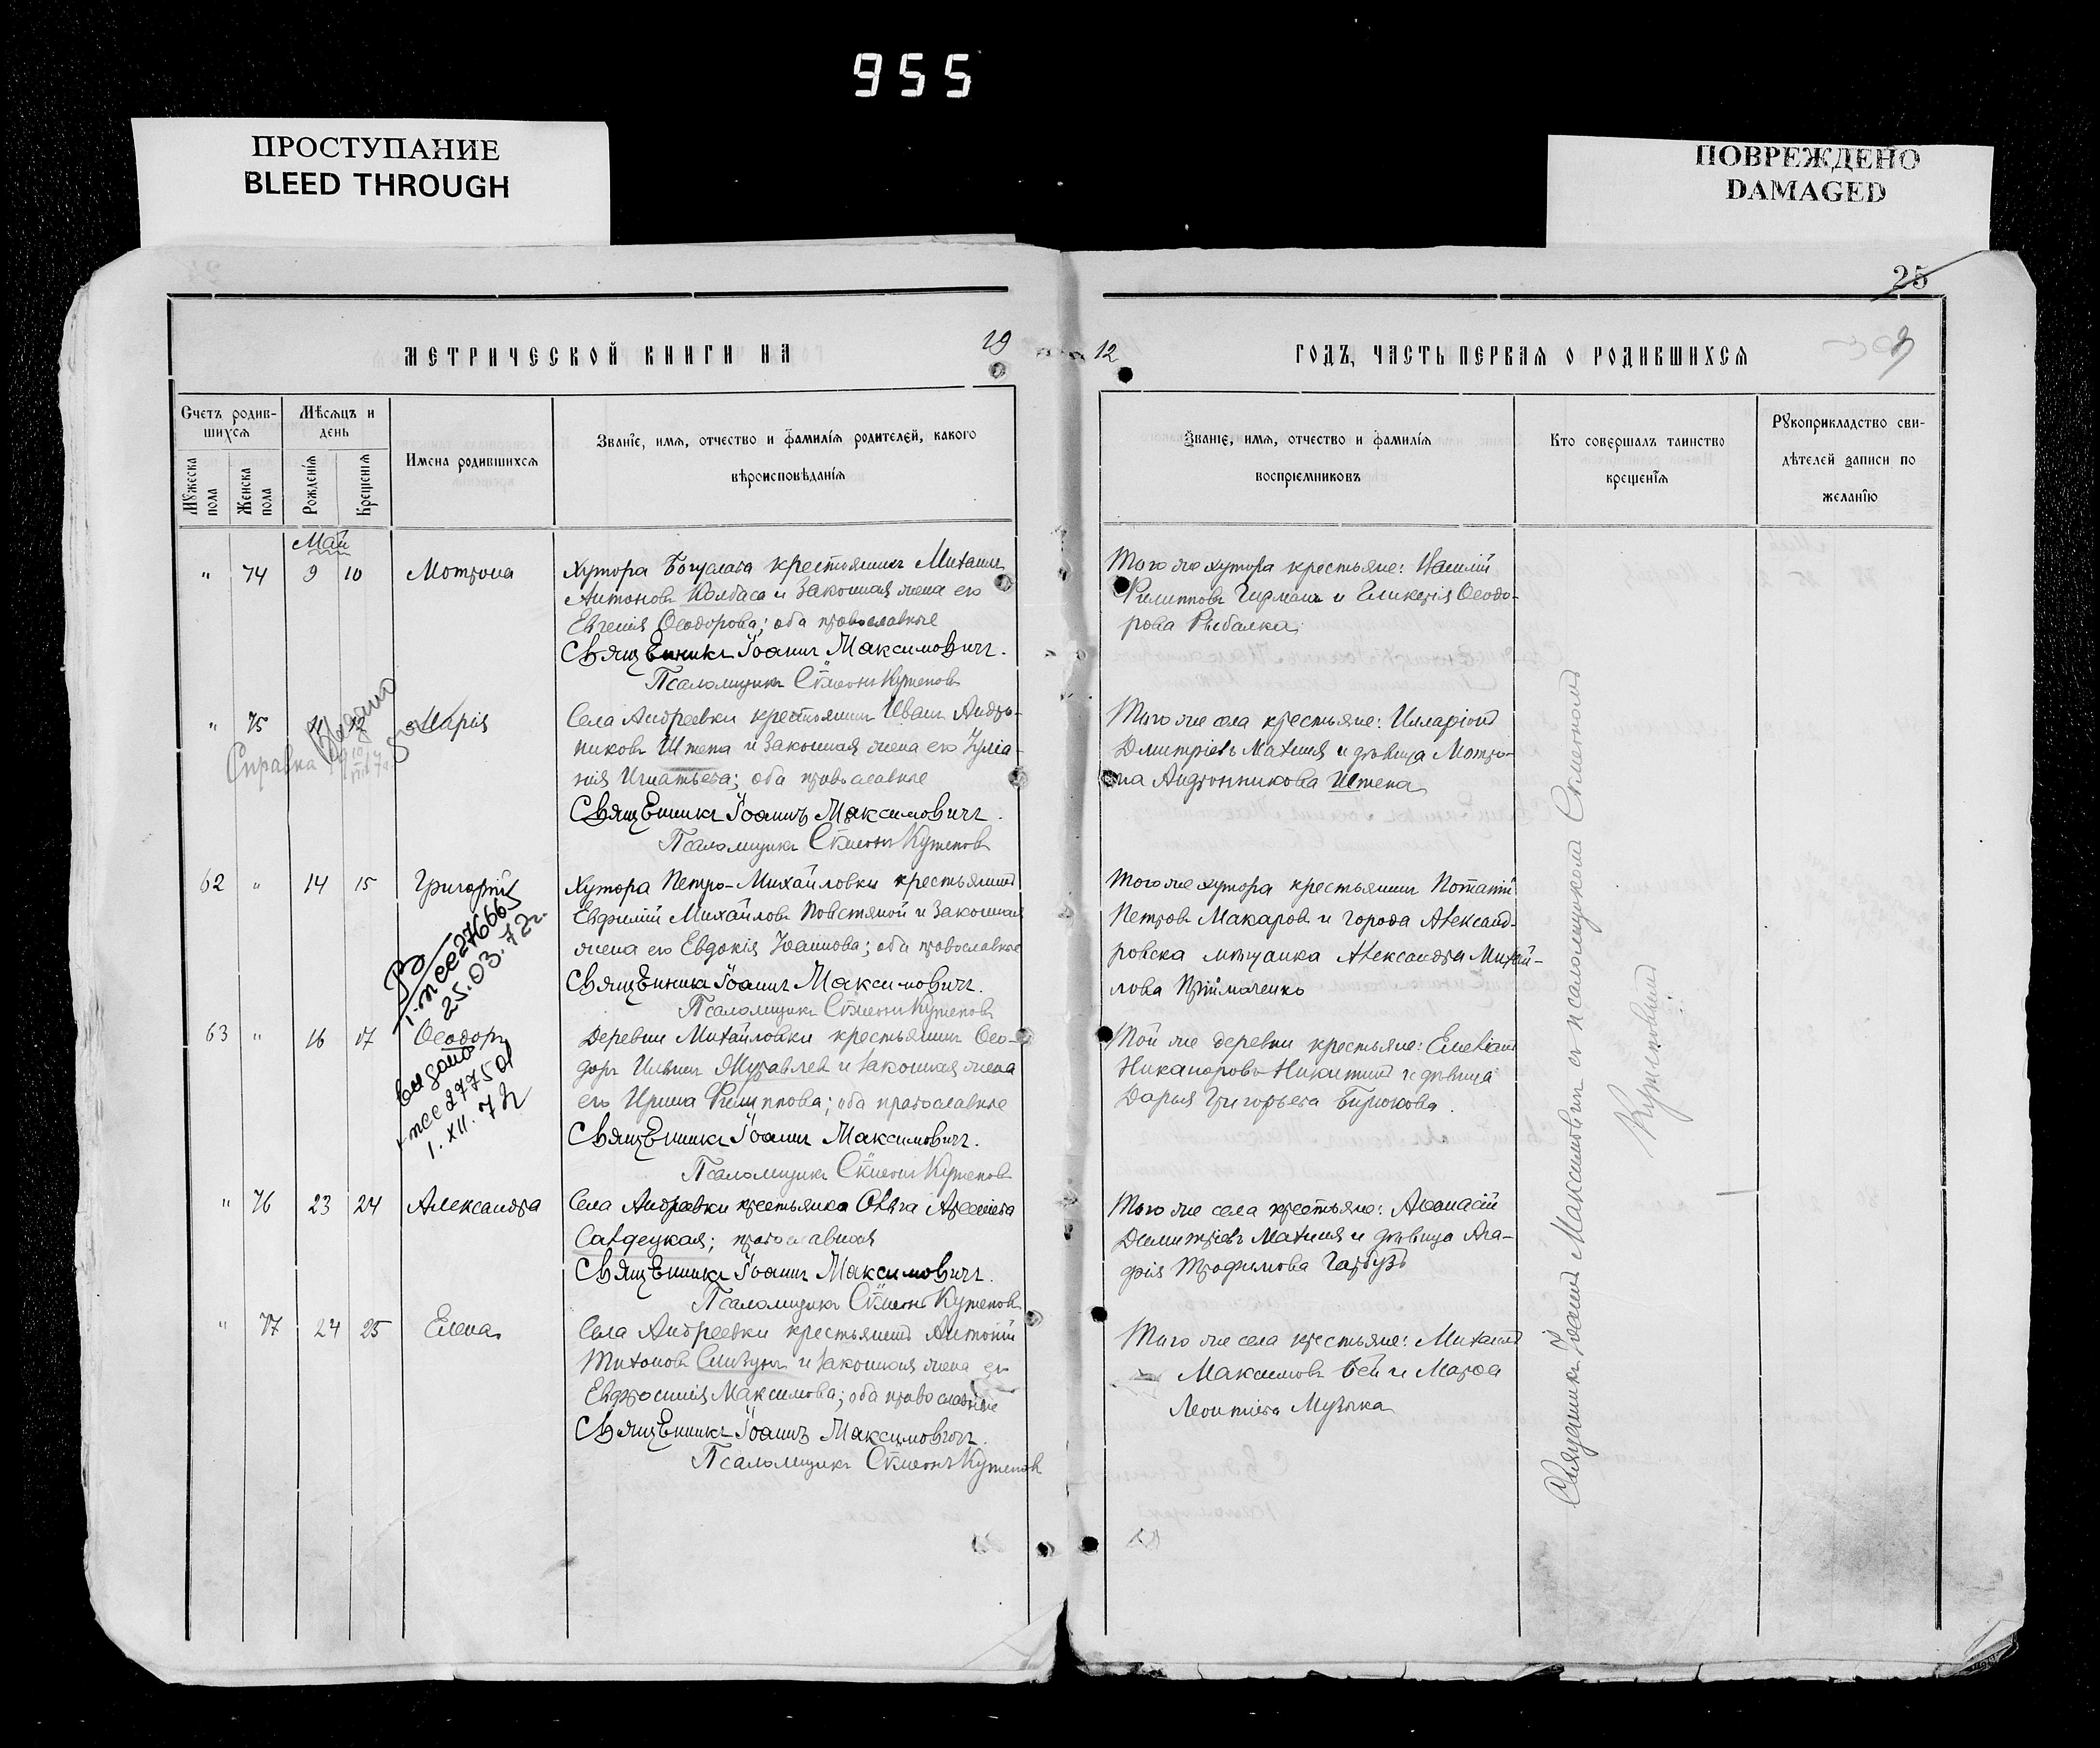 955
ПРОСТУПАНИЕ
BLEED THROUGH
ПОВРЕЖДЕНО
DAMAGED
25
МЕТРИЧЕСКОЙ КНИГИ НА 19
12 ГОДЪ, ЧАСТЬ ПЕРВАЯ О РОДИВШИХСЯ
Счетъ родив-
шихся
Мѣсяцъ и
день
Мужеска
пола
Женска
пола
Рожденія
Крещенія
Имена родившихся
Званіе, имя, отчество и фамилія родителей, какого
вѣроисповѣданія
Званіе, имя, отчество и фамилія
воспріемниковъ
Кто совершалъ таинство
крещенія
Рукоприкладство сви-
дѣтелей записи по
желанію
Май
" 74 9 10 Мотрона
Хутора Богодата крестьянинъ Михаилъ
Антоновъ Колбаса и законная жена его
Евгенія Ѳеодорова; оба православные
Священникъ Іоаннъ Максимовичъ.
Псаломщикъ Сѵмеонъ Кутеповъ
Того же хутора крестьяне: Василій
Филипповъ Гирманъ и Гликерія Ѳеодо-
рова Рыбалка
" 75 11 12 Марія
Справка Выдано
Села Андреевки крестьянинъ Иванъ Андро-
никовъ Штепа и законная жена его Іуліа-
нія Игнатьева; оба православные
Священникъ Іоаннъ Максимовичъ.
Псаломщикъ Сѵмеонъ Кутеповъ
Того же села крестьяне: Илларіонъ
Димитріевъ Махиня и дѣвица Мотро-
на Андронникова Штепа
62 " 14 15 Григорій
I-ЖСЕ 276665
25.03.72г.
Хутора Петро-Михайловки крестьянинъ
Евфимій Михайловъ Повстяной и законная
жена его Евдокія Іоаннова; оба православные
Священникъ Іоаннъ Максимовичъ.
Псаломщикъ Сѵмеонъ Кутеповъ
Того же хутора крестьянинъ Потапій
Петровъ Макаровъ и города Александ-
ровска мѣщанка Александра Михай-
лова Прійматенко
63 " 16 17 Ѳеодоръ
выдано
I-жсе 277501
1.XII.72
Деревни Михайловки крестьянинъ Ѳео-
доръ Ильинъ Журавлев и законная жена
его Ирина Филиппова; оба православные
Священникъ Іоаннъ Максимовичъ.
Псаломщикъ Сѵмеонъ Кутеповъ
Той же деревни крестьяне: Емеліанъ
Никаноровъ Никитинъ и дѣвица
Дарья Григорьева Бирюкова.
" 76 23 24 Александра
Села Андреевки крестьянка Ольга Арсеніева
Савдецкая; православная
Священникъ Іоаннъ Максимовичъ.
Псаломщикъ Сѵмеонъ Кутеповъ
Того же села крестьяне: Аѳанасій
Димитріевъ Махиня и дѣвица Ага-
фія Трофимова Гарбузъ
" 77 24 25 Елена
Села Андреевки крестьянинъ Антоній
Тихоновъ Слизунъ и законная жена его
Евфросинія Максимова; оба православные
Священникъ Іоаннъ Максимовичъ.
Псаломщикъ Сѵмеонъ Кутеповъ
Того же села крестьяне: Михаилъ
Максимовъ Бей и Марѳа
Леонтіева Музыка
Священникъ Іоаннъ Максимовичъ съ псаломщикомъ Сѵмеономъ
Кутеповымъ